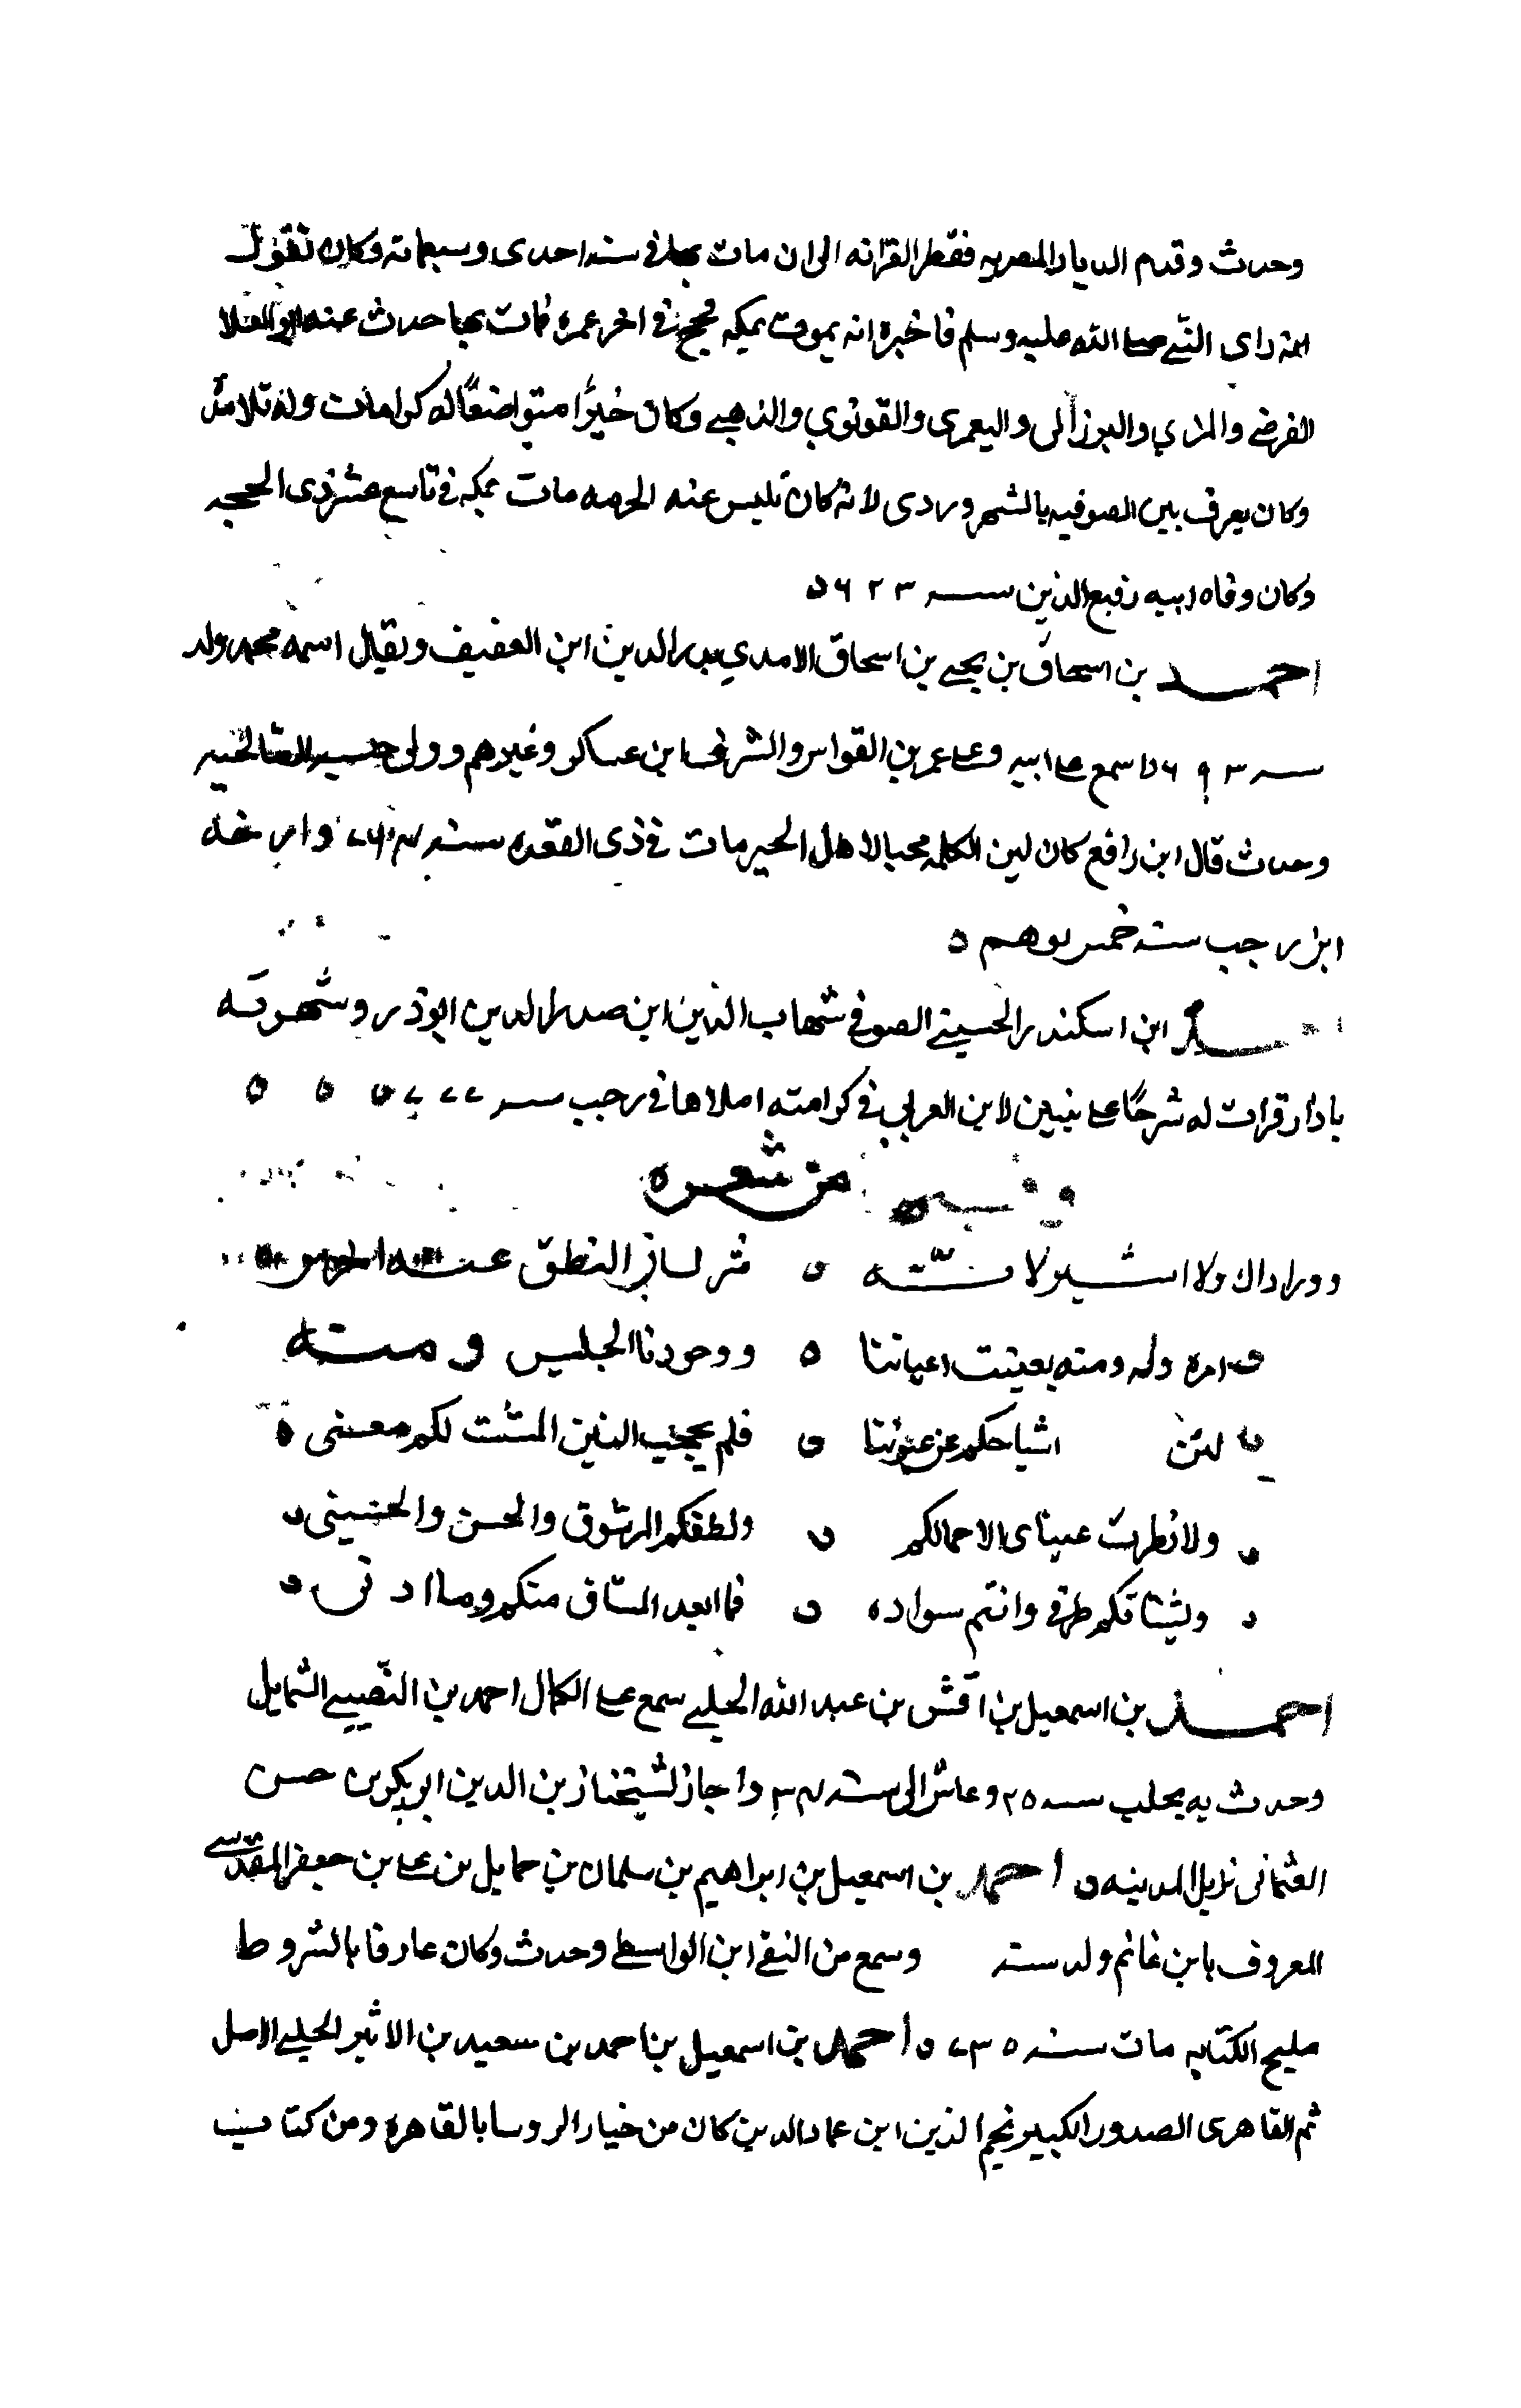 وحدث وقدم الديار المصريه فقطر القرافه الى ان مات بمكة فى سنه احدى وسبعمائه وكان يقول
انه راى النبي صلى الله عليه وسلم فاخبره انه يموت بمكه فحج فى اخر عمره فمات بها حدث عنه ابو العلا
الفرضي والمزي والبرزالى واليعمرى والقونوي والذهبي وكان خيرًا متواضعًا له كرامات وله تلامذة
وكان يعرف بين الصوفيه بالسهروردى لانه كان يلبس عنه الخرقه مات بمكه فى تاسع عشر ذى الحجه
وكان وفاه ابيه رفيع الدين سنه ٦٢٣
احمد بن اسحاق بن يحيى بن اسحاق الامدي بدر الدين ابن العفيف ويقال اسمه محمد ولد
سنه ٦٩٣ اسمع على ابيه وعلى عمر بن القواس والشرف ابن عساكر وغيرهم وولى حسبه الصالحيه
وحدث قال ابن رافع كان لين الكلمه محبا لاهل الخير مات فى ذى القعده سنه وارخه
ابن رجب سنه خمس فوهم
ابن اسكندر الحسيني الصوفى شهاب الدين ابن صدر الدين ابو ذر وشهرته
باذار قرات له شرحًا على بيتين لابن العربي فى كرامته املاها فى رجب سنه ٧٧٧
من شعره
ووراء ذاك ولا اشير لانه ٥ سر لسان النطق عنه اخرس
امره وله ومنه بعينت اعياننا ٥ ووجودنا الجليس ومنه
لئن اشباحكم عن عيوننا ٥ فلم يحجب البين المشت لكم معنى
ولا نظرت عيناى الا جمالكم ٥ ولطفكم المرشوق والحسن والحسنى
ويشتاقكم طرفى وانتم سواده ٥ فما ابعد المشتاق منكم وما ادنى
احمد بن اسمعيل بن اقش بن عبد الله الحلبي سمع على الكمال احمد بن النصيبي الشمايل
وحدث به بحلب سنه ٢٥ وعاش الى سنه ٤٣ واجاز لشيخنا زين الدين ابى بكر بن حسن
العثمانى نزيل المدينه احمد بن اسمعيل بن ابراهيم بن سلمان بن حمايل بن على بن جعفر المقدسي
المعروف بابن غانم ولد سنه وسمع من التقي ابن الواسطي وحدث وكان عارفا بالشروط
مليح الكتابه مات سنه ٧٣٥ احمد بن اسمعيل بن احمد بن سعيد بن الاثير الحلبي الاصل
ثم القاهرى الصدور الكبير نجم الدين ابن عماد الدين كان من خيار الروسا بالقاهره ومن كتاب